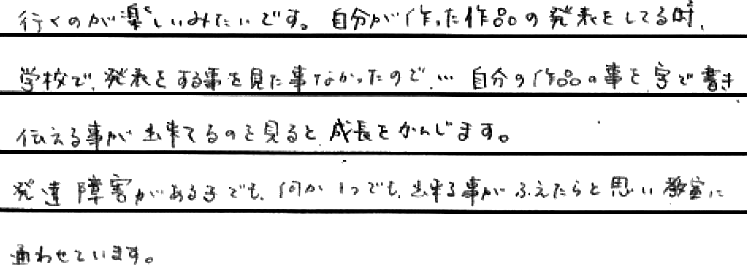 行くのが楽しいみたいです。自分が作った作品の発表をしてる時、
学校で、発表をする事を見た事なかったので、… 自分の作品の事を字で書き
伝える事が出来てるのを見ると、成長をかんじます。
発達障害がある子でも、何か1つでも、出来る事がふえたらと思い教室に
通わせています。